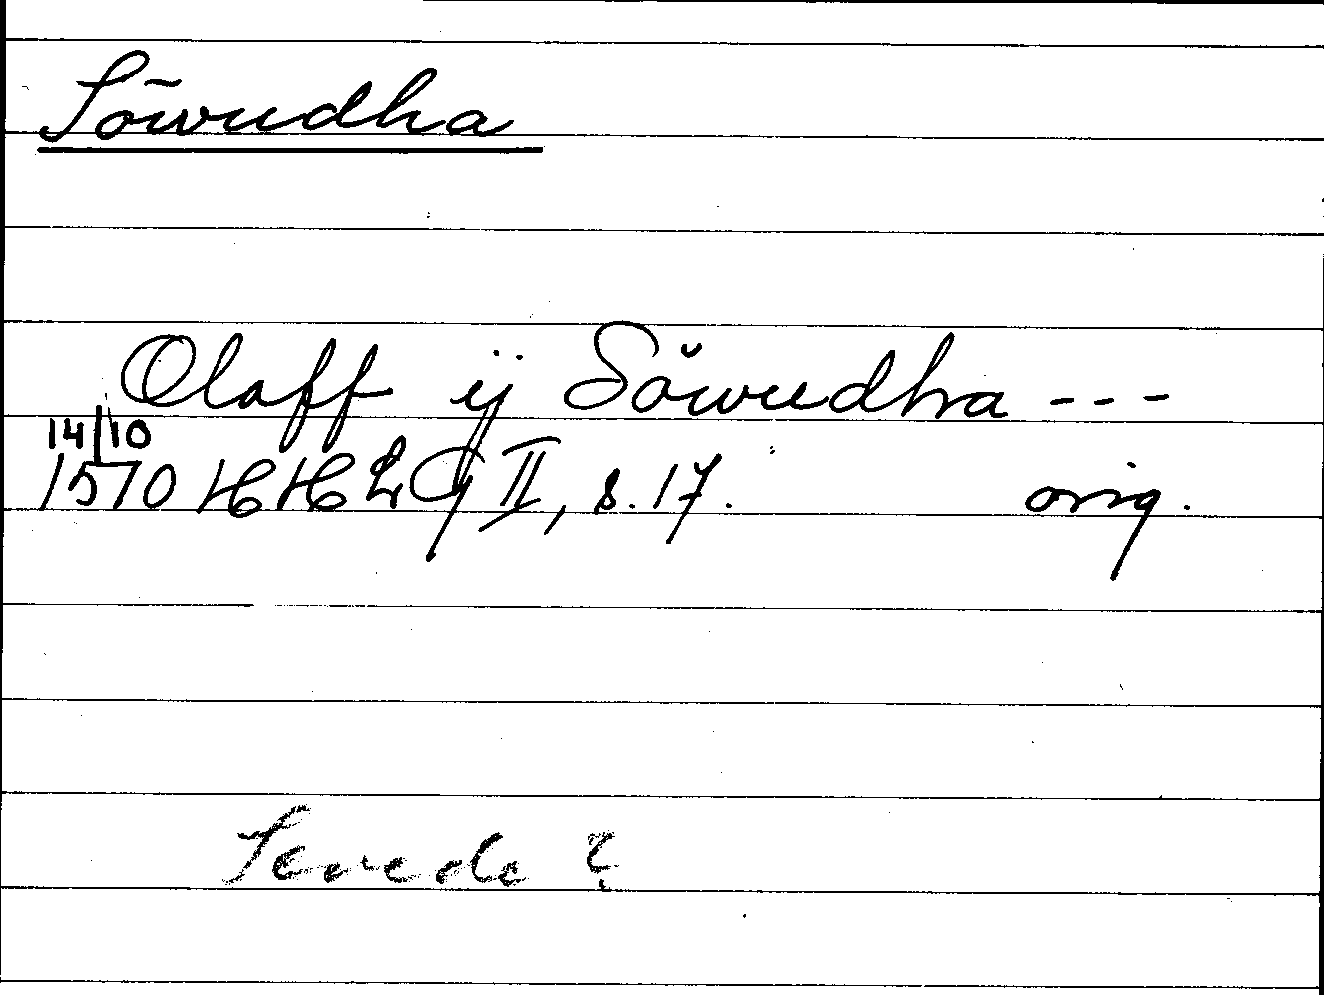 Söwudha
Olaff ÿ Söwudha ---
14/10
1570 HH Lg II, s. 17. orig.
Sevede ?